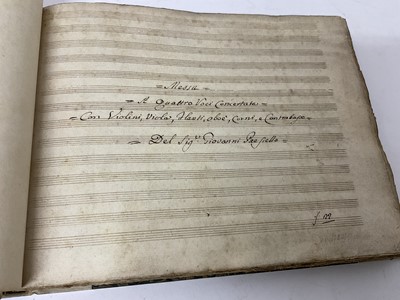 = Messa =
= A Quattro Voci Concertata =
= Con Violini, Viola, Flauti, oboe, Corni, e Contrabasso =
= Del Sig.r Giovanni Paesiello =